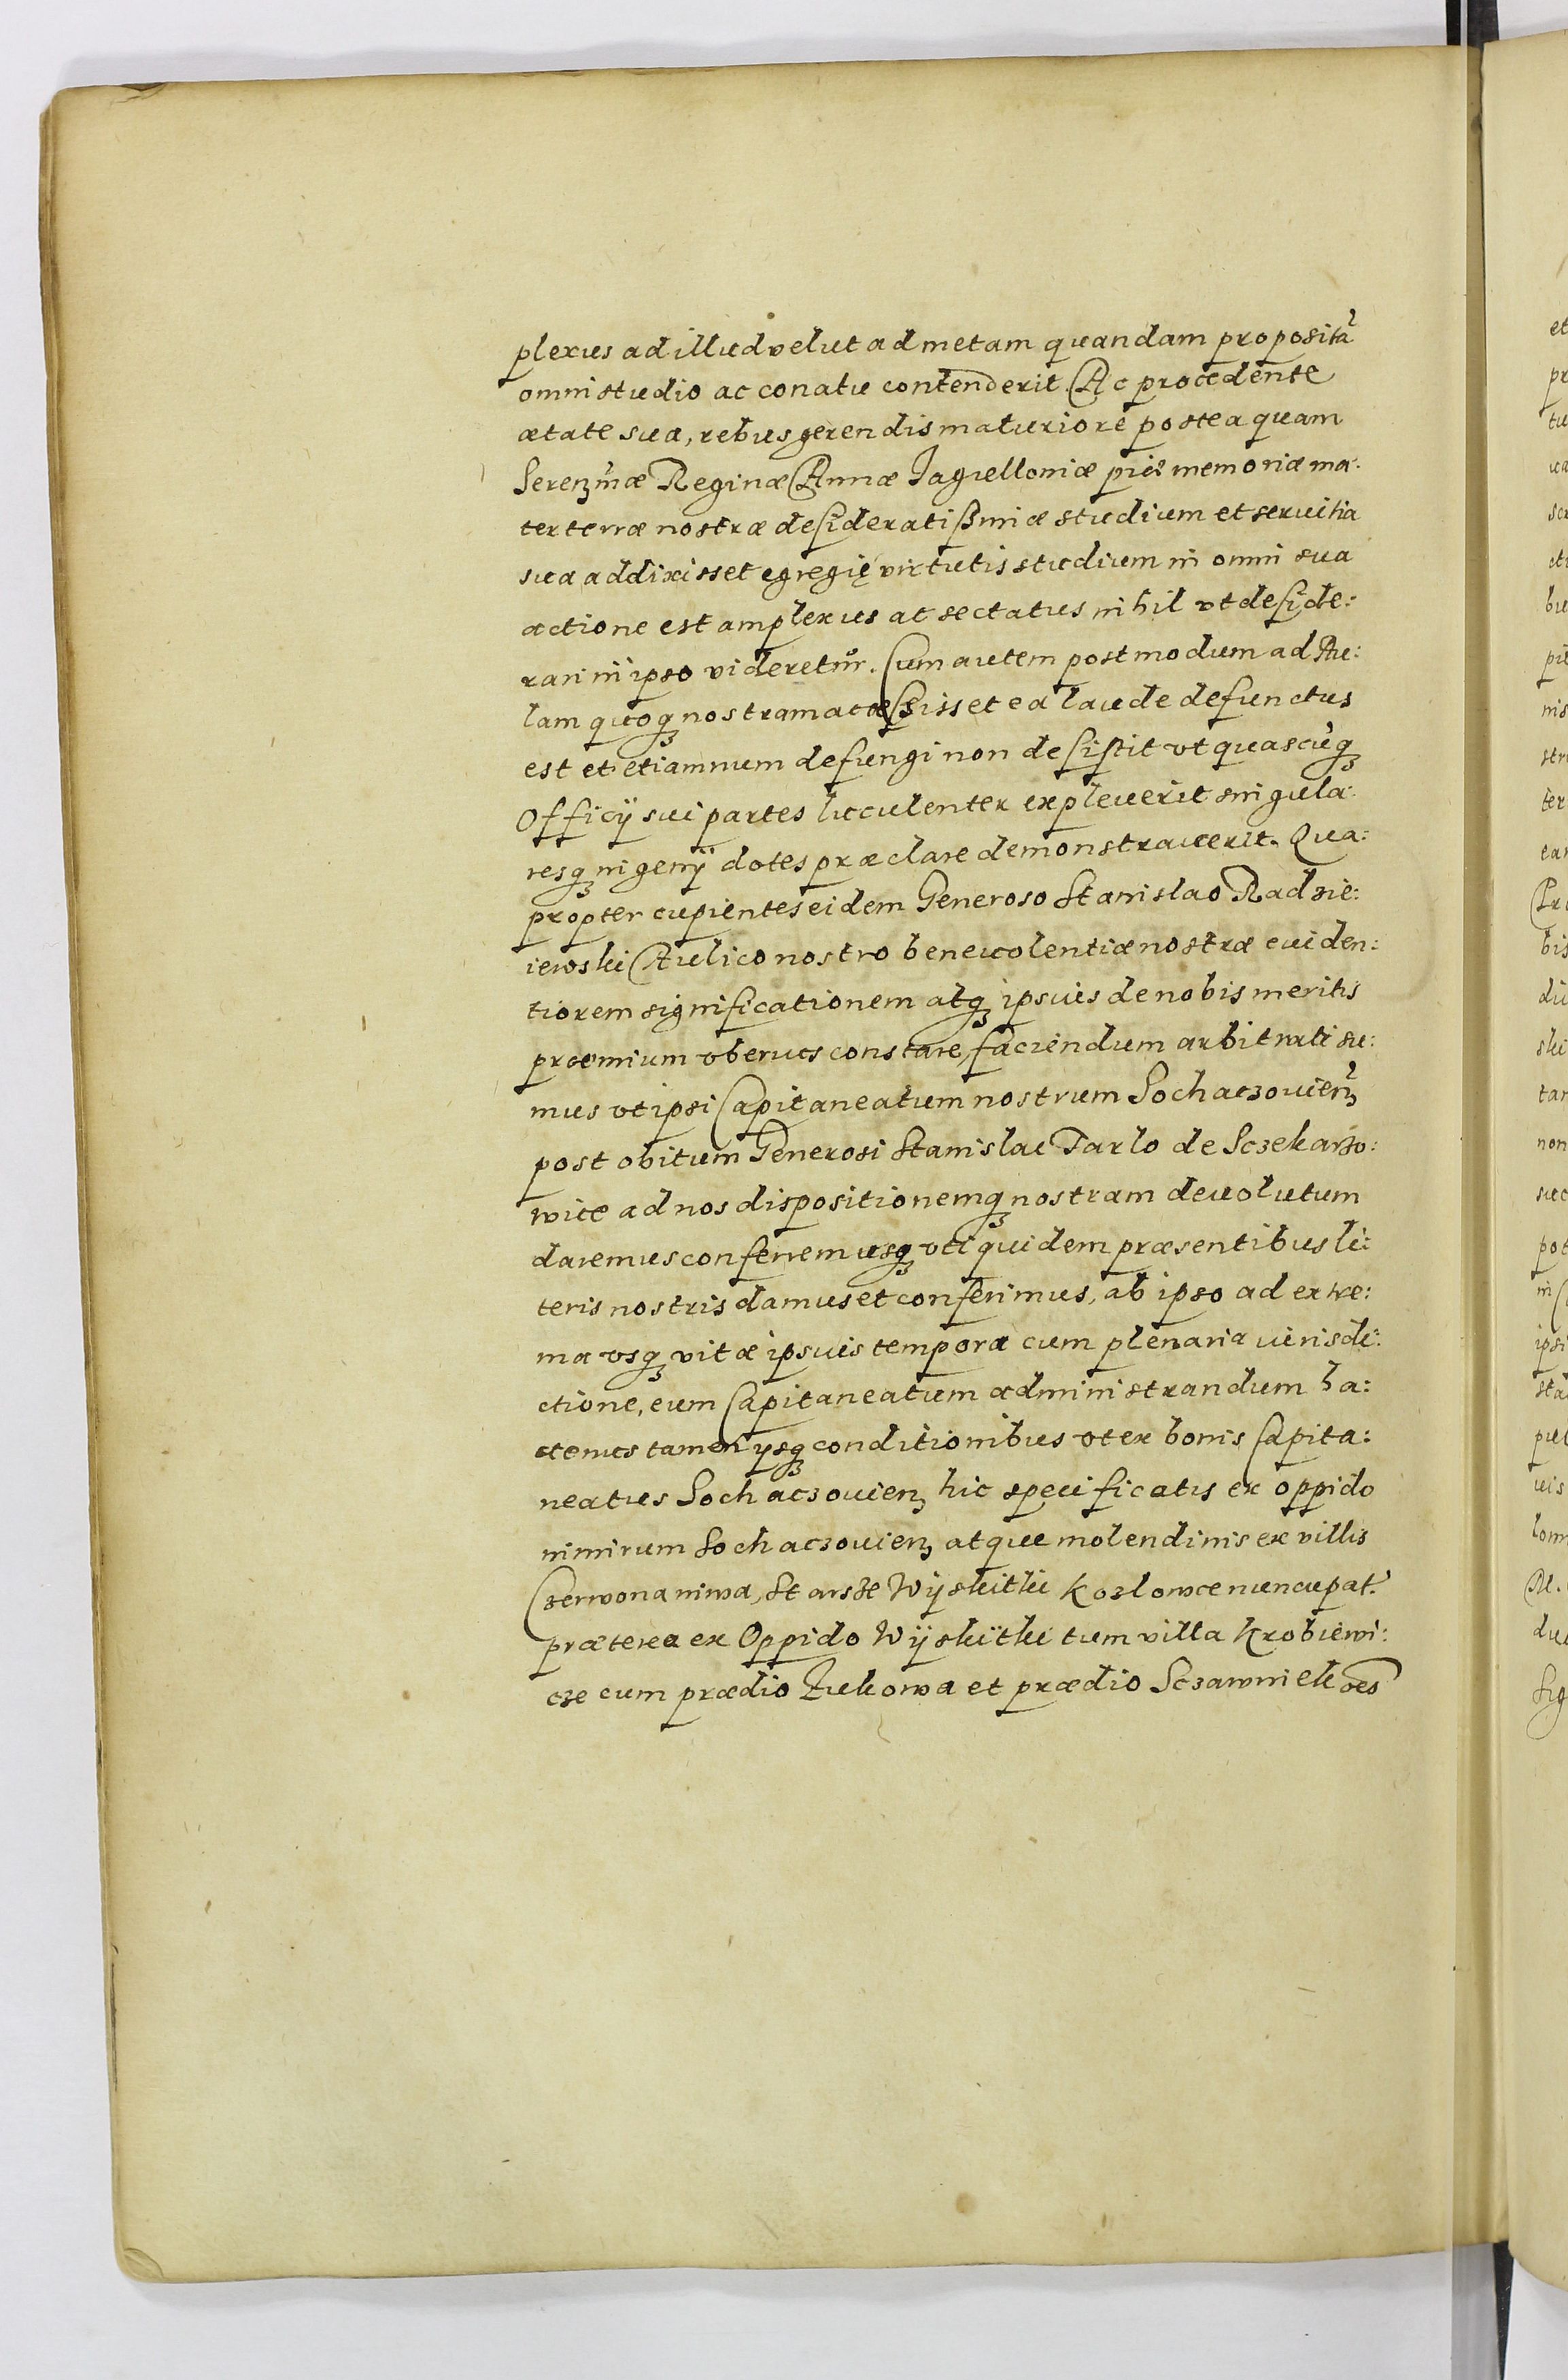 plexus ad illud velut ad metam quandam proposita᷉
omni studio ac conatu contenderit. Ac procedente
ætate sua, rebus gerendis maturiore postea quam
Serenmæ Reginæ Annæ Jagielloniæ piæ memoriæ ma:
terterræ nostræ desideratißimæ studium et seruitia
sua addixisset egregię virtutis studium in omni sua
actione est amplexus ac sectatus nihil vt deside:
rari in ipso videretur. Cum autem postmodum ad Au:
lam quoqꝫ nostram accessisset ea laude defunctus
est et etiamnum defungi non desistit vt quascu᷉qꝫ
Officÿ sui partes luculenter expleuerit singula:
resqꝫ ingenÿ dotes præclare demonstrauerit. Qua:
propter cupientes eidem Generoso Stanislao Radzie:
iewski Aulico nostro beneuolentiæ nostræ euiden:
tiorem significationem atqꝫ ipsius de nobis meritis
præmium vberius constare, faciendum arbitrati su:
mus vt ipsi Capitaneatum nostrum Sochaczouienꝫ
post obitum Generosi Stanislai Tarlo de Sczekarzo:
wice ad nos dispositionemqꝫ nostram deuolutum
daremus conferremusqꝫ vti quidem præsentibus li:
teris nostris damus et conferimus, ab ipso ad extre:
ma vsqꝫ vitæ ipsius tempora cum plenaria iurisdi:
ctione, eum Capitaneatum administrandum ha:
ctenus tamen ÿsqꝫ conditionibus vt ex bonis Capita:
neatus Sochaczouienꝫ hic specificatis ex oppido
nimirum Sochaczouienꝫ atque molendinis ex villis
Czerwona niwa, Starske Wÿskitki Kozlowce nuncupat.
præterea ex Oppido Wÿskitki tum villa Krobiewi:
cze cum prædio Zukowa et prædio Sczawinek oẽs